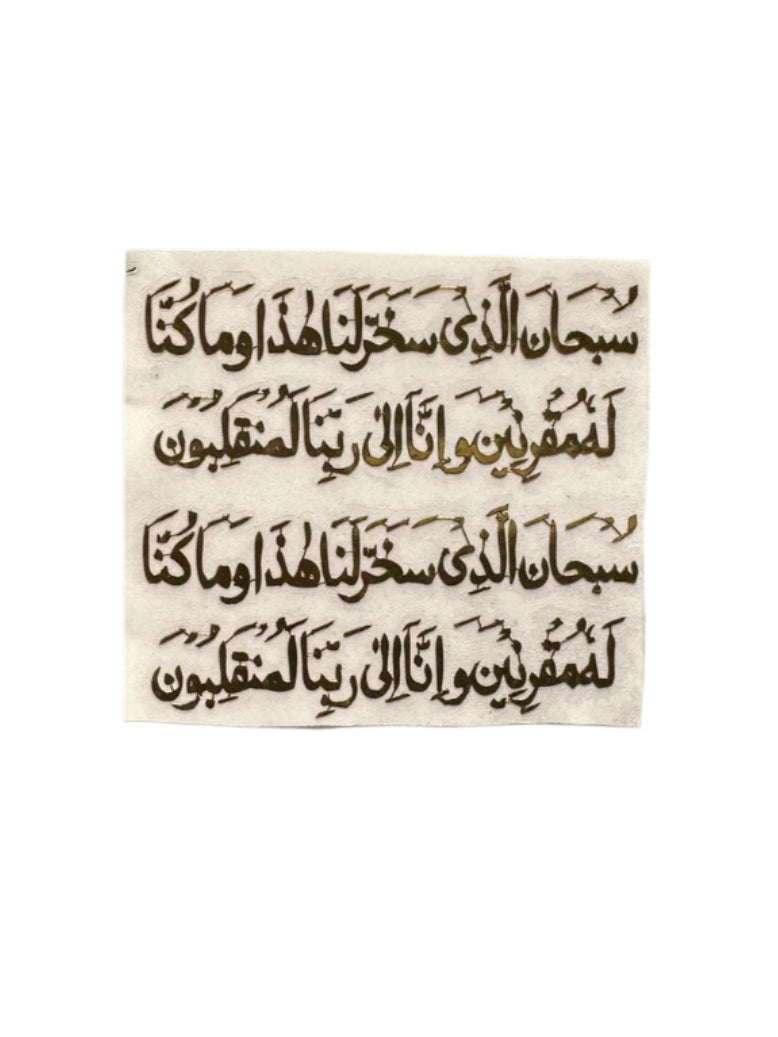 سُبحَانَ الَّذِى سَخَّرَلَنَا هٰذَا وَمَا كُنَّا
لَهُ مُقرِنِينَ وَاِنَّآ اِلٰى رَبِّنَا لَمُنقَلِبُونَ
سُبحَانَ الَّذِى سَخَّرَلَنَا هٰذَا وَمَا كُنَّا
لَهُ مُقرِنِينَ وَاِنَّآ اِلٰى رَبِّنَا لَمُنقَلِبُونَ